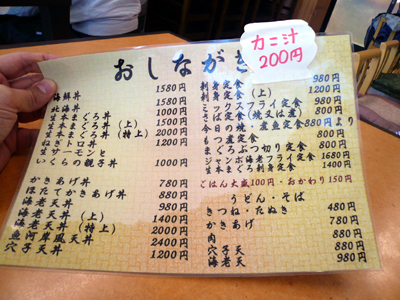 おしながき
カニ汁
200円
海鮮丼 1580円
北海丼 1580円
生本まぐろ丼 1000円
生本まぐろ丼(上) 1500円
生本まぐろ丼(特上) 2000円
ねぎトロ丼 1200円
生サーモンと
いくらの親子丼 1000円
かきあげ丼 780円
ほたてかきあげ丼 880円
海老天丼 980円
海老天丼(上) 1400円
海老天丼(特上) 2000円
魚河岸風天丼 2400円
穴子天丼 1200円
刺身定食 980円
刺身定食(上) 1200円
ミックスフライ定食 980円
さば定食(焼又は煮) 880円
今日の焼・煮魚定食 880円より
もつ煮定食 880円
まぐろぶつ切り定食 880円
ジャンボ海老フライ定食 1580円
生本まぐろ刺定食 1300円
ごはん大盛100円・おかわり150円
うどん・そば
きつね・たぬき 480円
かきあげ 780円
肉 880円
穴子天 880円
海老天 980円